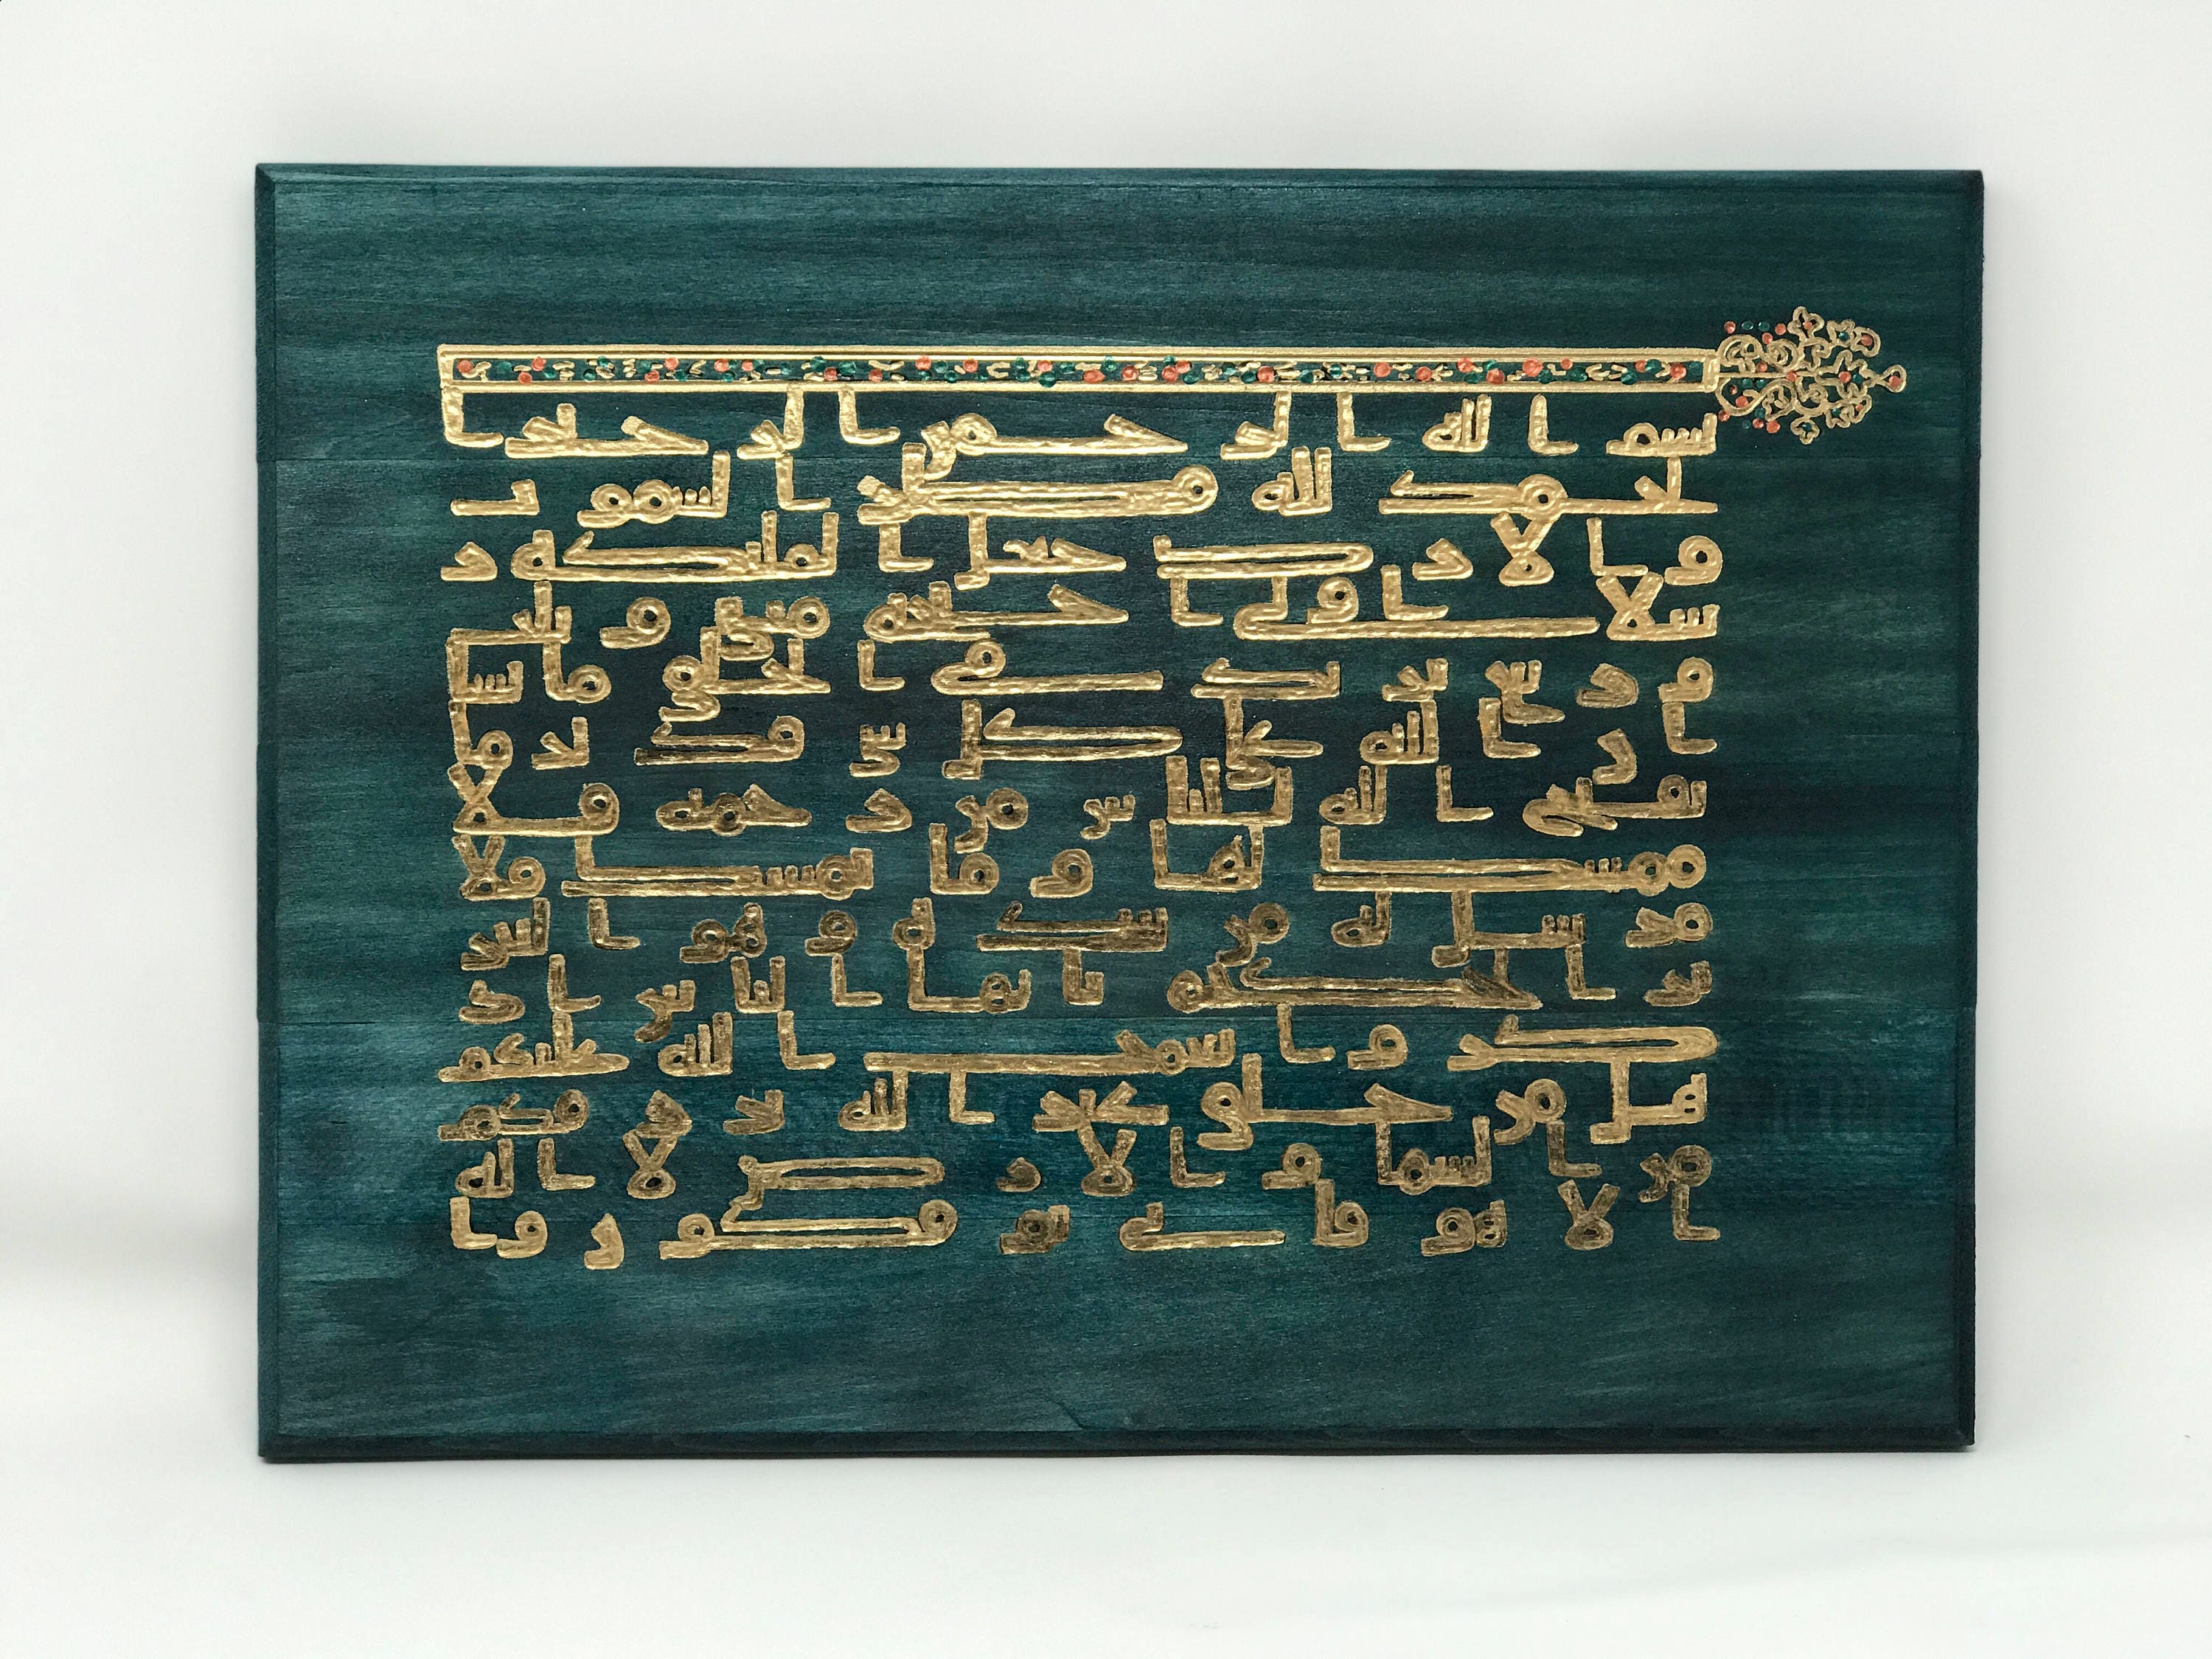 بسم الله الرحمن الرحيم
الحمد لله فطر السموت
والارض جعل الملئكة ر
سلا اولي اجنحة مثنى وثلث
وربع يزيد في الخلق ما يشا
ان الله على كل شي قدير ما
يفتح الله للناس من رحمة فلا
ممسك لها وما يمسك فلا
مرسل له من بعده وهو العز
يز الحكيم يايها الناس اذ
كروا نعمت الله عليكم
هل من خلق غير الله يرزقكم
من السما والارض لا اله
الا هو فانى تؤفكون وا